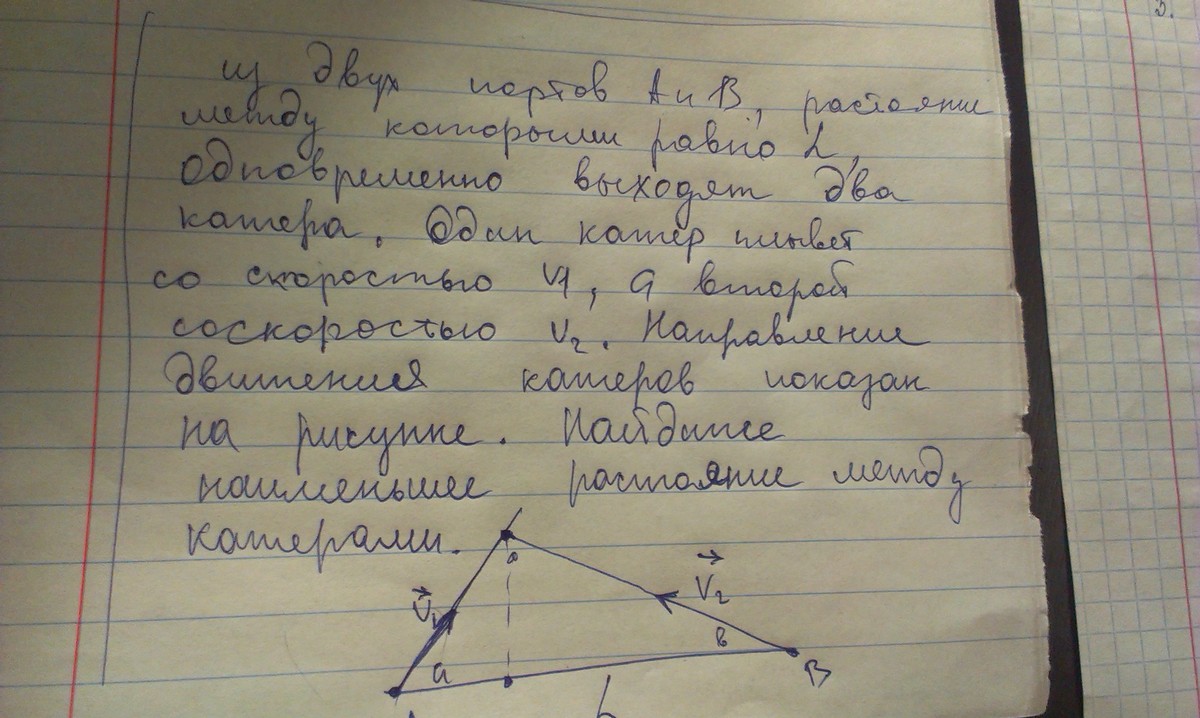 из двух портов A и B, растояние
между которыми равно L,
одновременно выходят два
катера. Один катер плывёт
со скоростью V1, а второй
соскоростью V2. Направление
движения катеров показан
на рисунке. Найдите
наименьшее растояние между
катерами.
V1
V2
a
в
B
L
3.